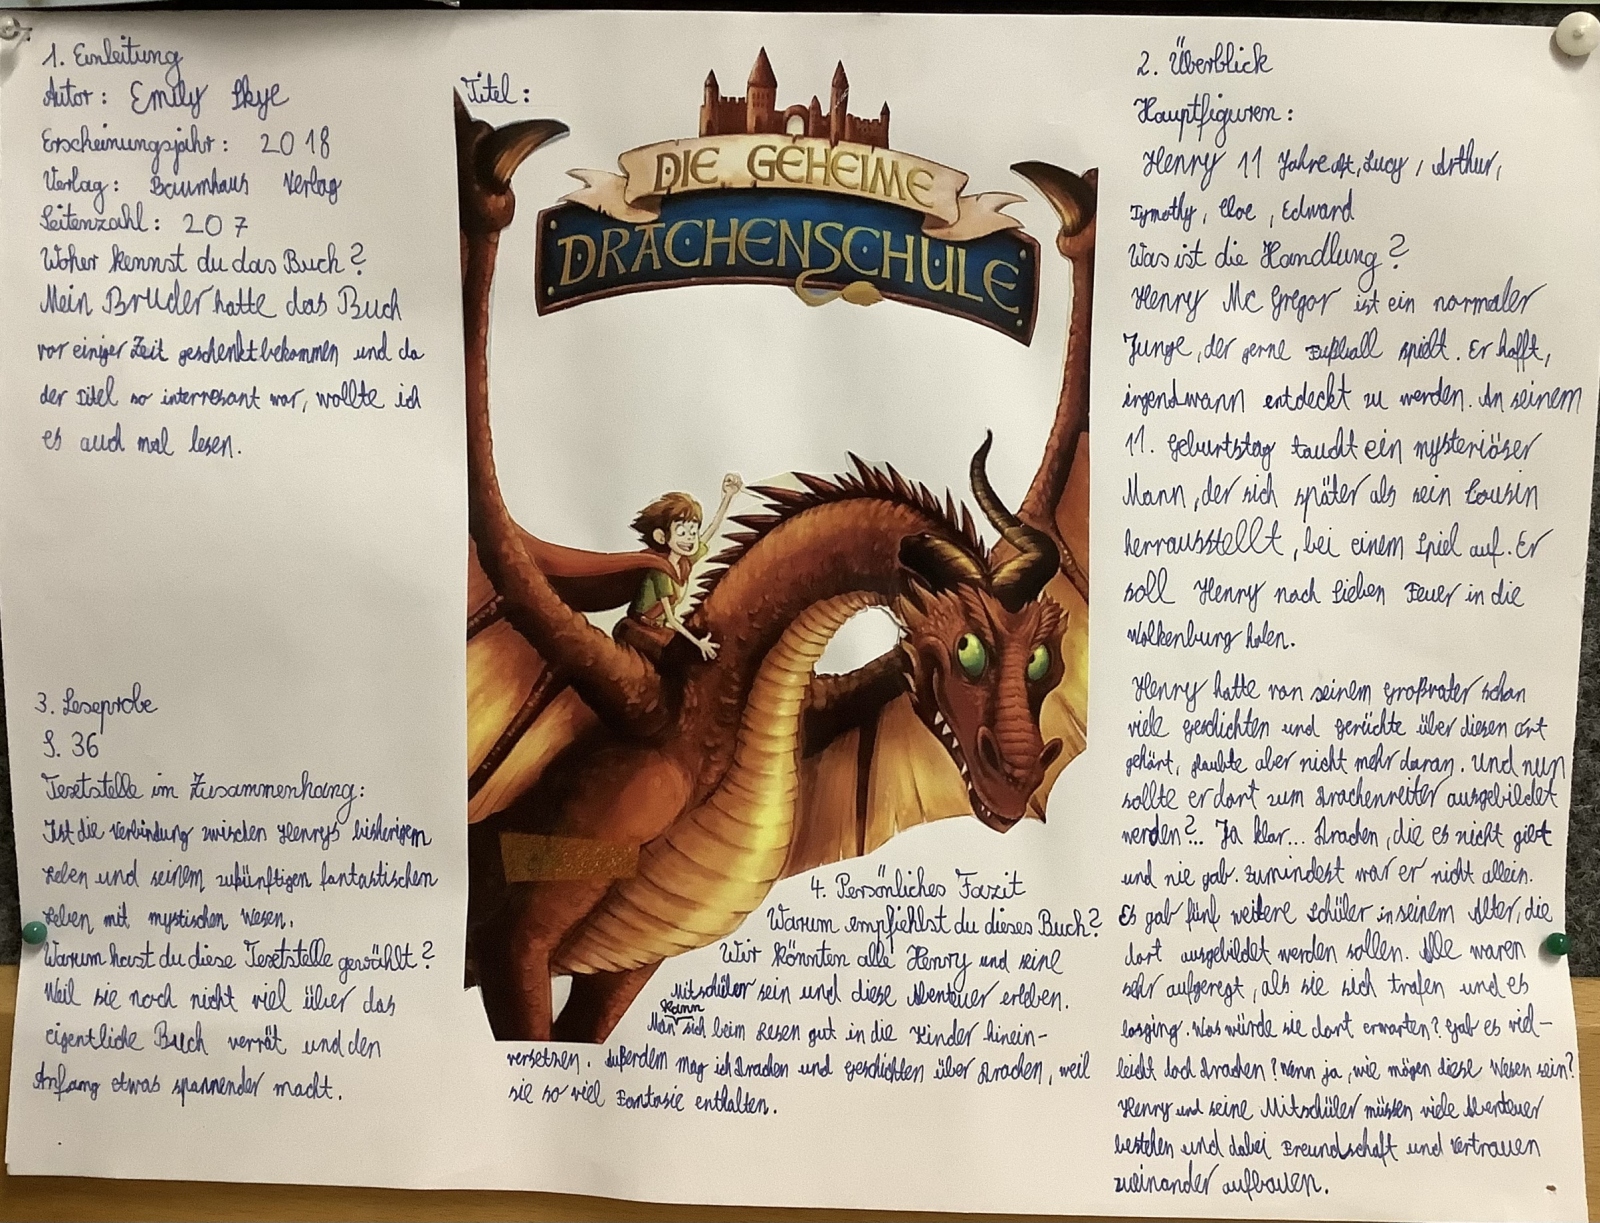 1. Einleitung
Autor: Emily Skye
Erscheinungsjahr: 2018
Verlag: Baumhaus Verlag
Seitenzahl: 207
Woher kennst du das Buch?
Mein Bruder hatte das Buch
vor einiger Zeit geschenkt bekommen und da
der Titel so interresant war, wollte ich
es auch mal lesen.
Titel:
DIE GEHEIME
DRACHENSCHULE
2. Überblick
Hauptfiguren:
Henry 11 Jahre alt, Lucy, Arthur,
Tymothy, Cloe, Edward
Was ist die Handlung?
Henry Mc Gregor ist ein normaler
Junge, der gerne Fußball spielt. Er hofft,
irgendwann entdeckt zu werden. An seinem
11. Geburtstag taucht ein mysteriöser
Mann, der sich später als sein Cousin
herrausstellt, bei einem Spiel auf. Er
soll Henry nach Sieben Feuer in die
Wolkenburg holen.
Henry hatte von seinem Großvater schon
viele geschichten und gerüchte über diesen ort
gehört, glaubte aber nicht mehr daran. Und nun
sollte er dort zum Drachenreiter ausgebildet
werden?... Ja klar... Drachen, die es nicht gibt
und nie gab. Zumindest war er nicht allein.
Es gab fünf weitere Schüler in seinem Alter, die
dort ausgebildet werden sollen. Alle waren
sehr aufgeregt, als sie sich trafen und es
losging. Was würde sie dort erwarten? Gab es viel-
leicht doch Drachen? Wenn ja, wie mögen diese Wesen sein?
Henry und seine Mitschüler müssen viele Abenteuer
bestehen und dabei Freundschaft und Vertrauen
zueinander aufbauen.
3. Leseprobe
S. 36
Textstelle im Zusammenhang:
Ist die Verbindung zwischen Henrys bisherigem
Leben und seinem zukünftigen fantastischen
Leben mit mystischen Wesen.
Warum hast du diese Textstelle gewählt?
Weil sie noch nicht viel über das
eigentliche Buch verrät und den
Anfang etwas spannender macht.
4. Persönliches Fazit
Warum empfiehlst du dieses Buch?
Wir könnten alle Henry und seine
Mitschüler sein und diese Abenteuer erleben.
Man kann sich beim Lesen gut in die Kinder hinein-
versetzen. Außerdem mag ich Drachen und geschichten über Drachen, weil
sie so viel Fantasie enthalten.